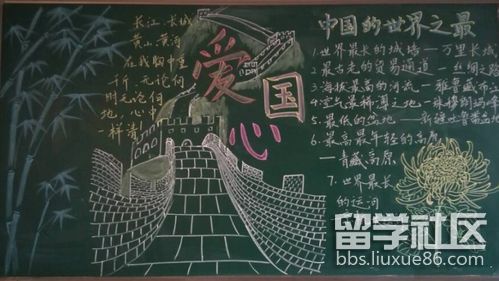 长江 长城
黄山 黄河
在我胸中重
千斤 无论何
时 无论何
地 心中
一样
爱
国
心
中国的世界之最
1.世界最长的城墙——万里长城
2.最古老的贸易通道——丝绸之路
3.海拔最高的河流——雅鲁藏布
4.空气最稀薄之地——珠穆朗玛
5.最低的盆地——新疆吐鲁番盆地
6.最高最年轻的高原
——青藏高原
7.世界最长
的运河
留学社区
bbs.liuxue86.com